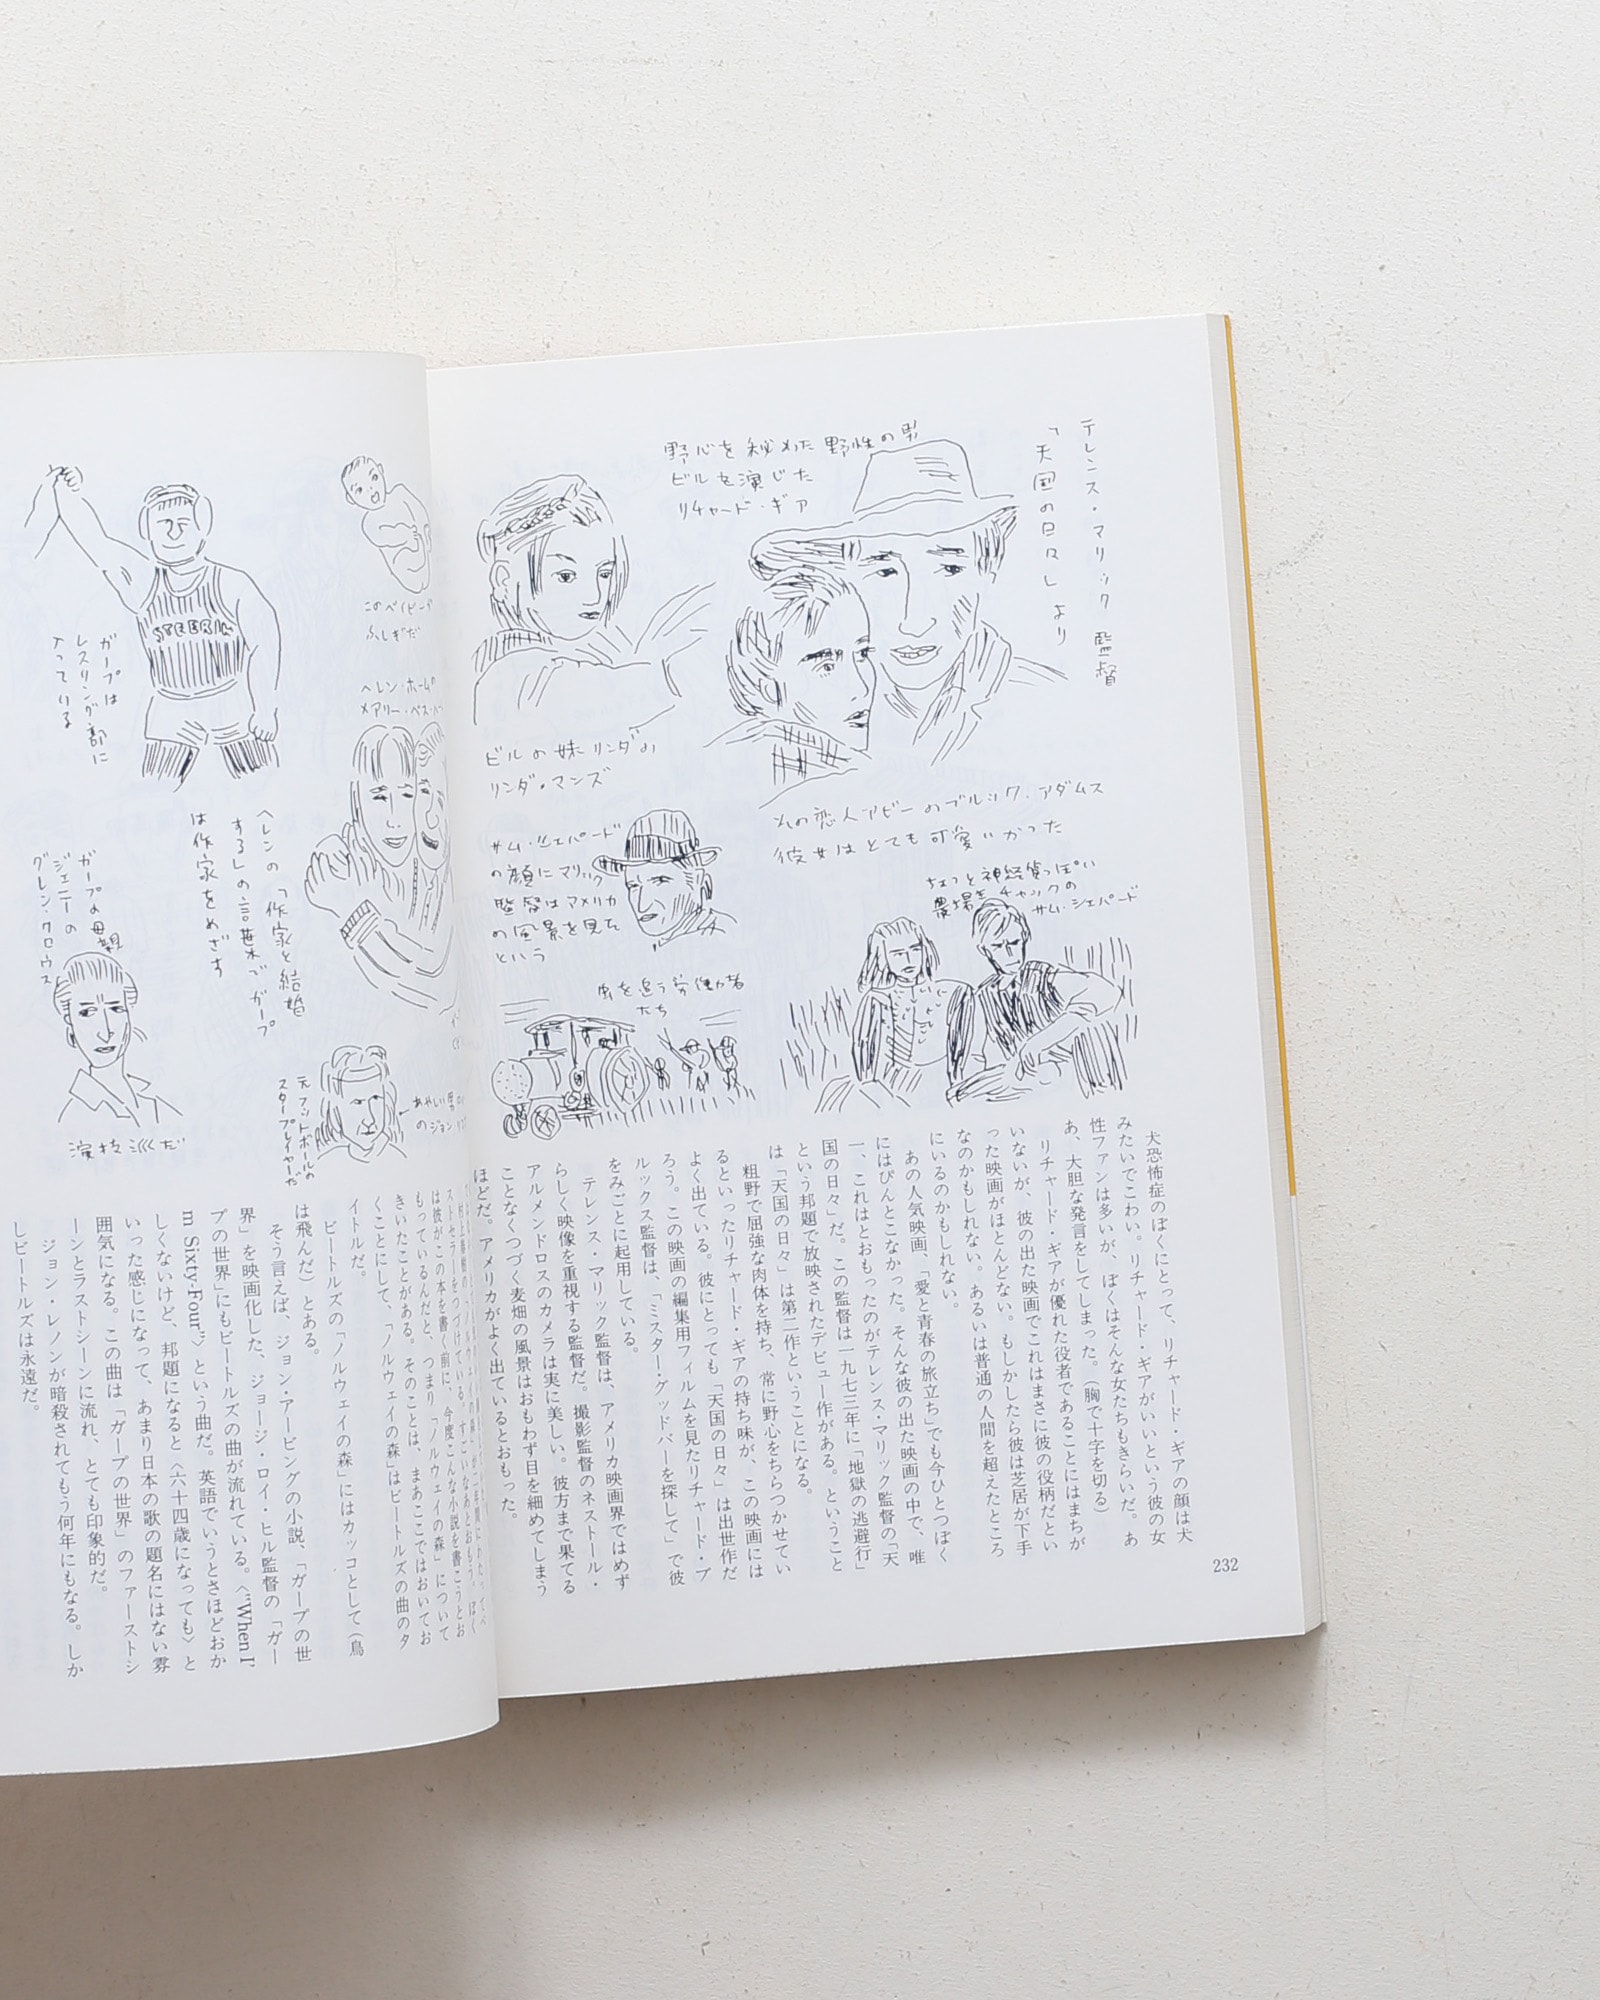 テレンス・マリック監督
「天国の日々」より
野心を秘めた野性の男
ビルを演じた
リチャード・ギア
その恋人アビーのブルック・アダムス
彼女はとても可愛いかった
ちょっと神経質っぽい
農場主チャックの
サム・シェパード
ビルの妹リンダの
リンダ・マンズ
サム・シェパード
の顔にマリック
監督はアメリカ
の風景を見た
という
労働者
たち
犬恐怖症のぼくにとって、リチャード・ギアの顔は犬
みたいでこわい。リチャード・ギアがいいという彼の女
性ファンは多いが、ぼくはそんな女たちもきらいだ。あ
あ、大胆な発言をしてしまった。(胸で十字を切る)
リチャード・ギアが優れた役者であることにはまちが
いないが、彼の出た映画でこれはまさに彼の役柄だとい
った映画がほとんどない。もしかしたら彼は芝居が下手
なのかもしれない。あるいは普通の人間を超えたところ
にいるのかもしれない。
あの人気映画、「愛と青春の旅立ち」でも今ひとつぼく
にはぴんとこなかった。そんな彼の出た映画の中で、唯
一、これはとおもったのがテレンス・マリック監督の「天
国の日々」だ。この監督は一九七三年に「地獄の逃避行」
という邦題で放映されたデビュー作がある。ということ
は「天国の日々」は第二作ということになる。
粗野で屈強な肉体を持ち、常に野心をちらつかせてい
るといったリチャード・ギアの持ち味が、この映画には
よく出ている。彼にとっても「天国の日々」は出世作だ
ろう。この映画の編集用フィルムを見たリチャード・ブ
ルックス監督は、「ミスター・グッドバーを探して」で彼
をみごとに起用している。
テレンス・マリック監督は、アメリカ映画界ではめず
らしく映像を重視する監督だ。撮影監督のネストール・
アルメンドロスのカメラは実に美しい。彼方まで果てる
ことなくつづく麦畑の風景はおもわず目を細めてしまう
ほどだ。アメリカがよく出ているとおもった。
232
このベイビーが
ふしぎだ
ヘレン・ホームの
メアリー・ベス・
ガープは
レスリング部に
入っている
ヘレンの「作家と結婚
する」の言葉でガープ
は作家をめざす
ガープの母親
ジェニーの
グレン・クロウス
演技派だ
元フットボールの
スタープレイヤーだ
あやしい男
のジョン・
ストセラーをつづけている。すごいなあとおもう。ぼく
は彼がこの本を書く前に、今度こんな小説を書こうとお
もっているんだと、つまり「ノルウェイの森」について
きいたことがある。そのことは、まあここではおいてお
くことにして、「ノルウェイの森」はビートルズの曲のタ
イトルだ。
ビートルズの「ノルウェイの森」にはカッコとして(鳥
は飛んだ)とある。
そう言えば、ジョン・アービングの小説、「ガープの世
界」を映画化した、ジョージ・ロイ・ヒル監督の「ガー
プの世界」にもビートルズの曲が流れている。〈"When I'
m Sixty-Four"〉という曲だ。英語でいうとさほどおか
しくないけど、邦題になると〈六十四歳になっても〉と
いった感じになって、あまり日本の歌の題名にはない雰
囲気になる。この曲は「ガープの世界」のファーストシ
ーンとラストシーンに流れ、とても印象的だ。
ジョン・レノンが暗殺されてもう何年にもなる。しか
しビートルズは永遠だ。